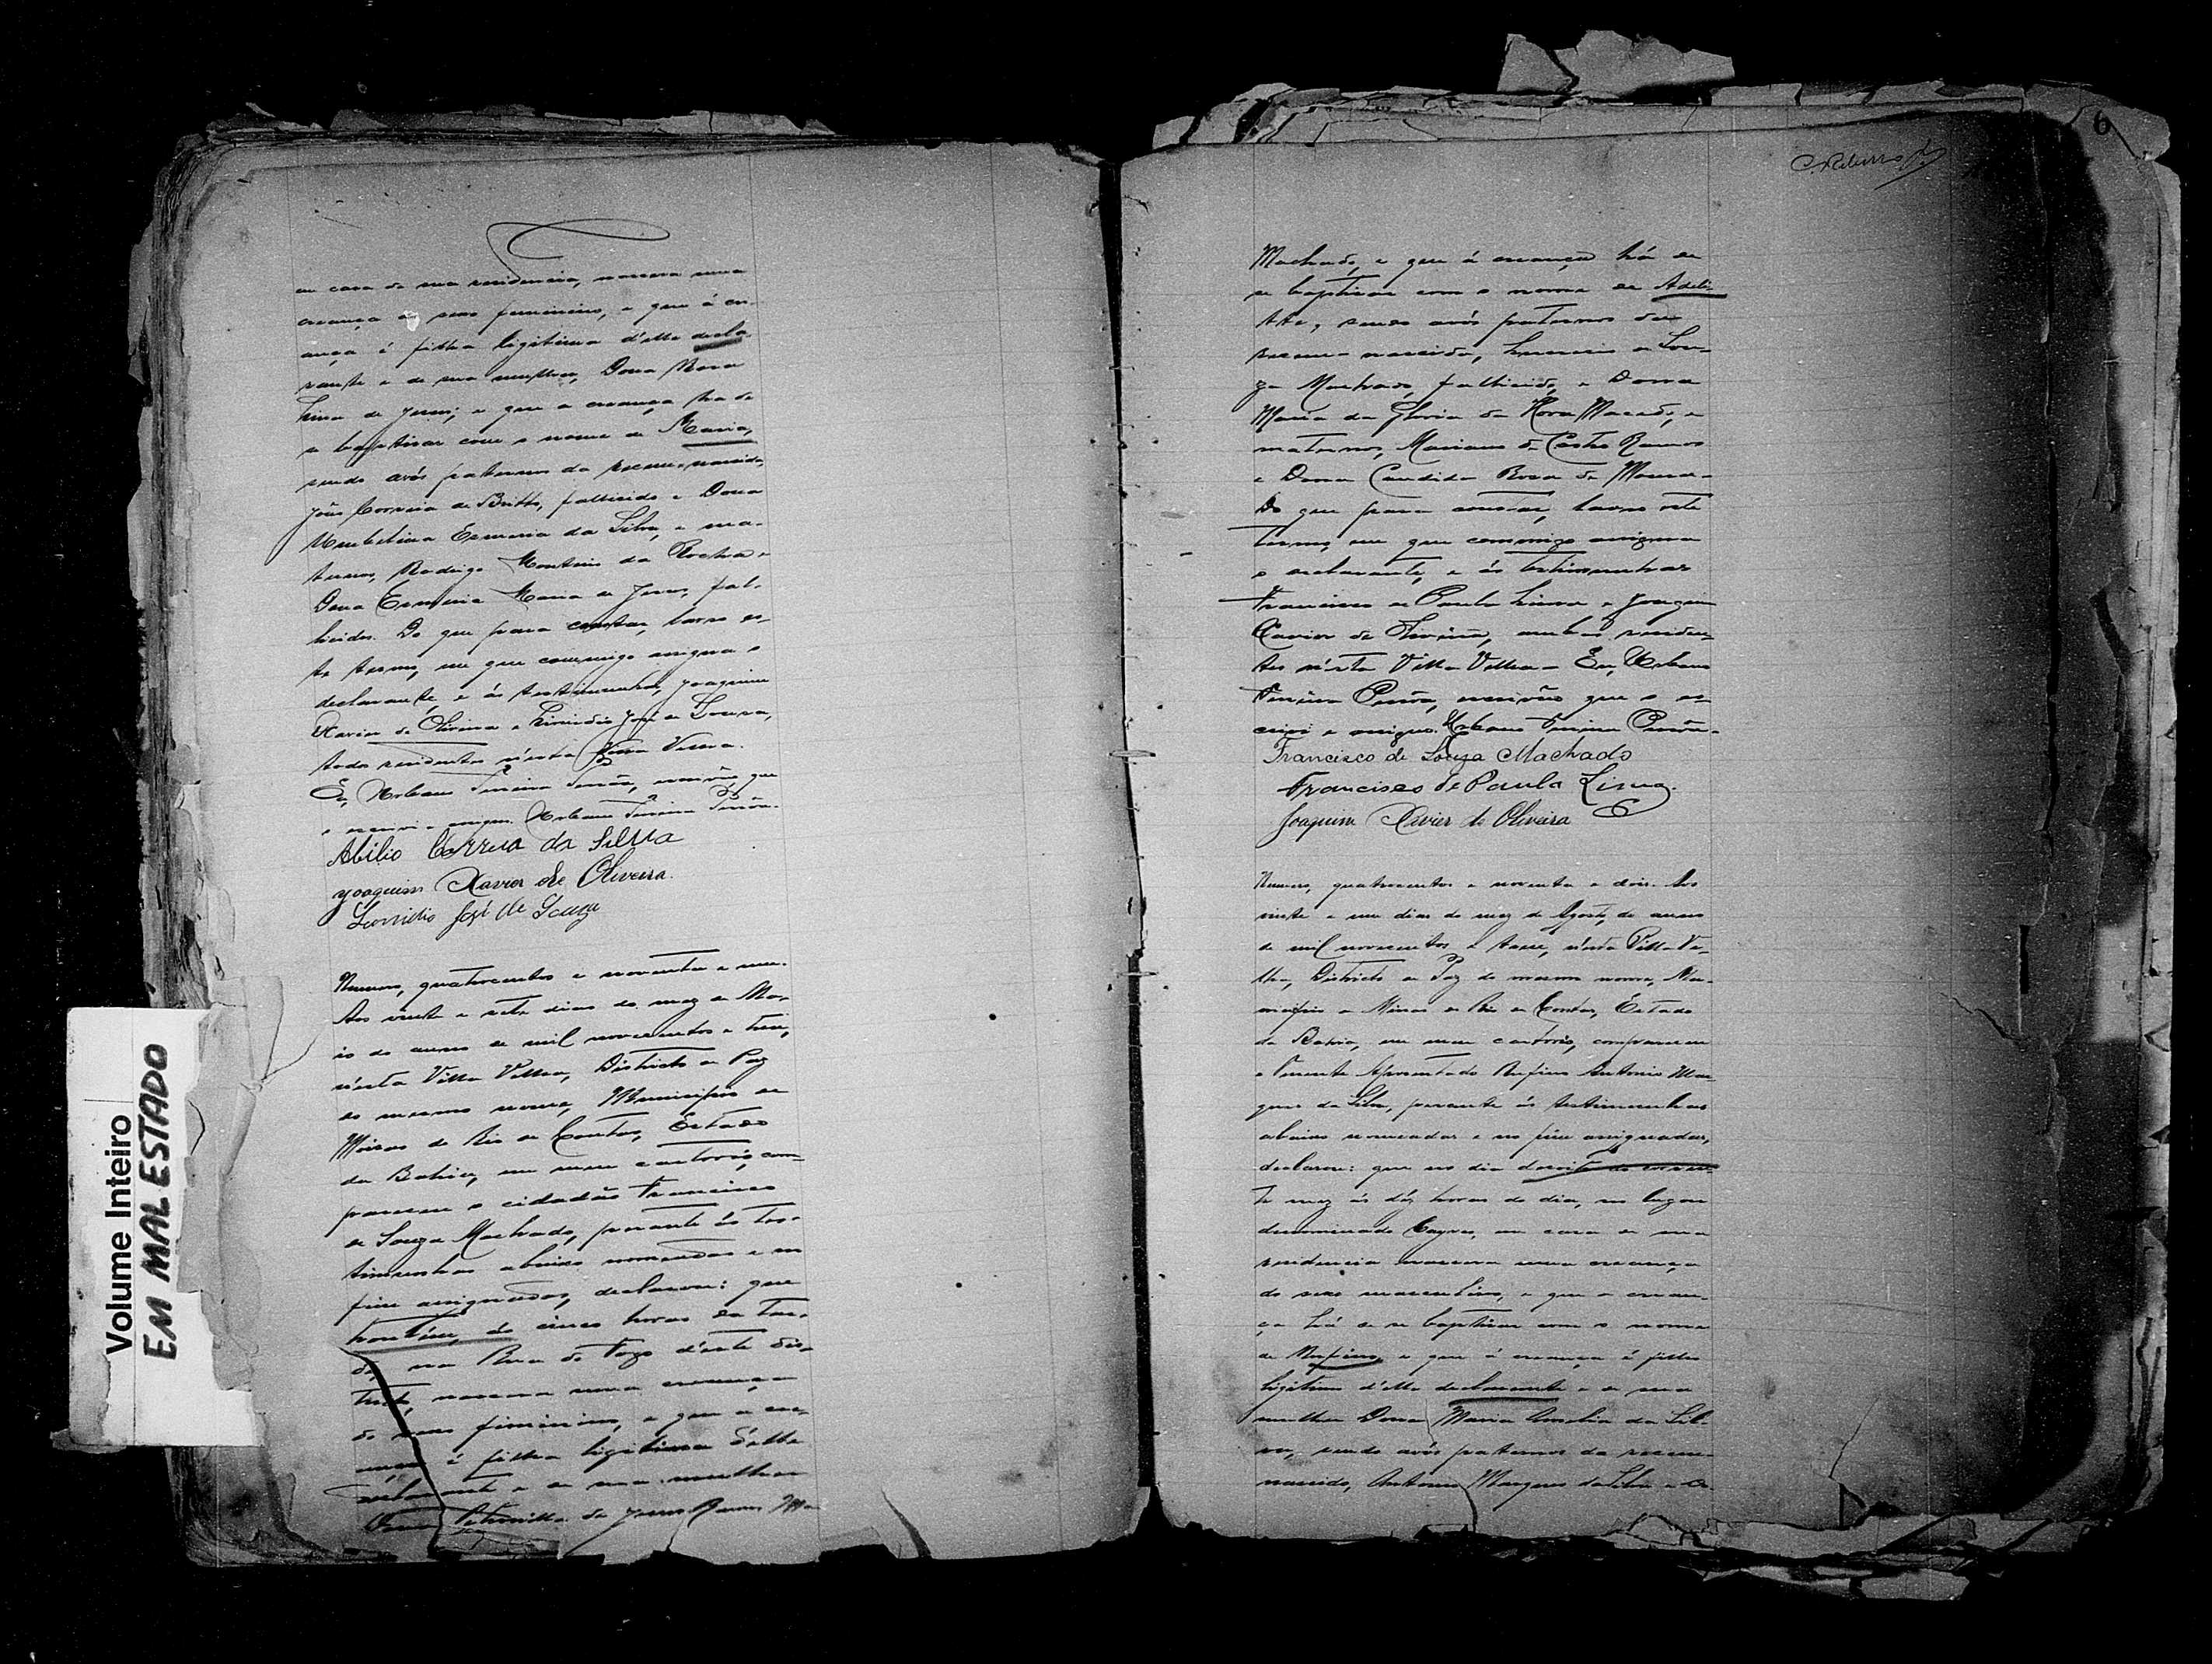 em casa de sua residencia, nascera uma
creança de sexo feminino, e que a cre-
ança é filha legitima d'elle decla-
rante e de sua mulher, Dona Rosa
Lima de Jesus; e que a creança ha de
se baptisar com o nome de Maria,
sendo avós paternos da recem-nascida,
João Correia de Britto, fallecido e Dona
Umbelina Esmeria da Silva, e ma-
ternos, Rodrigo Monteiro da Rocha e
Dona Esmeria Maria de Jesus, fal-
lecidos. Do que para constar, lavro es-
te termo, em que commigo assigna o
declarante, e ás testimunhas, Joaquim
Xavier de Oliveira e Leonidio José de Souza,
todos residentes n'esta Villa Velha.
Eu, Urbano escrivão que
o escrivi e assigno. Urbano
Abilio Correia da Silva
Joaquim Xavier de Oliveira.
Leonidio José de Souza
Numero, quatrocentos e noventa e um.
Aos vinte e sete dias do mez de Ma-
io do anno de mil novecentos e treze,
n'esta Villa Velha, Districto de Paz
do mesmo nome, Municipio de
Minas do Rio de Contas, Estado
da Bahia, em meu cartorio, com-
pareceu o cidadão Francisco
de Souza Machado, perante ás tes-
timunhas abaixo nomeadas e no
fim assignadas, declarou: que
hontem, ás cinco horas da tar-
de, na Rua do Fogo d'este Dis-
tricto, nascera uma creança
do sexo feminino, e que a cre-
ança é filha legitima d'elle
declarante e de sua mulher
Dona Petronilla de Jesus Ramos Ma-
Volume Inteiro
EM MAL ESTADO
6
Machado, e que á creança há de
se baptisar com o nome de Adeli-
, sendo avós paternos da
recem-nascida, de Sou-
za Machado, fallecido, e Dona
Maria da Gloria da Hora Macedo, e
maternos, Mariano de Castro Ramos
e Dona Candida Rosa de Moura-
Do que para constar, lavro este
termo, em que commigo assigna
o declarante, e ás testimunhas
Francisco de Paula Lima e Joaquim
Xavier de Oliveira, ambos residen-
tes n'esta Villa Velha- Eu, Urbano
escrivão que o es-
crivi e assigno. Urbano
Francisco de Souza Machado
Francisco de Paula Lima.
Joaquim Xavier de Oliveira
Numero, quatrocentos e noventa e dois. Aos
vinte e um dias do mez de Agosto do anno
de mil novecentos e treze, n'esta Villa Ve-
lha, Districto de Paz do mesmo nome, Mu-
nicipio de Minas do Rio de Contas, Estado
da Bahia, em meu cartorio, compareceu
o Tenente Aposentado Rufino Antonio Mar-
ques da Silva, perante ás testimunhas
abaixo nomeadas e no fim assignadas,
declarou: que no dia dezoito do corren-
te mez ás déz horas do dia, no lugar
denominado em casa de sua
residencia nascera uma creança
do sexo masculino, e que a crean-
ça há de se baptisar com o nome
de Rufino, e que á creança é filho
legitimo d'elle declarante e de sua
mulher Dona Maria Amelia da Sil-
va, sendo avós paternos do recem-
nascido, Antonio Marques da Silva e D.